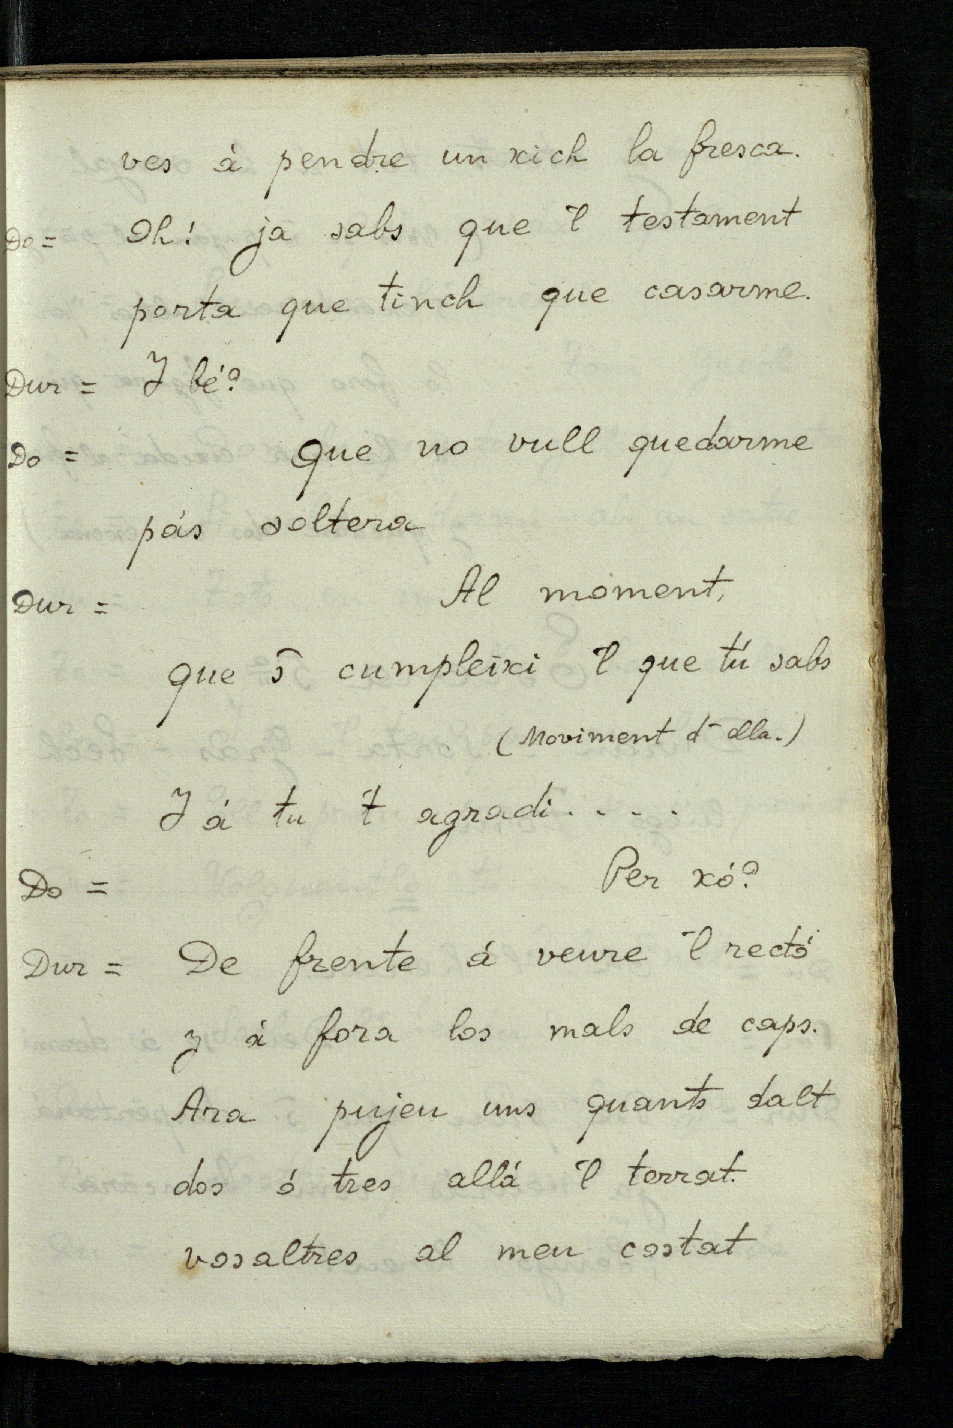 ves á pendre un xich la fresca.
Do = Oh! ja sabs que 'l testament
porta que tinch que casarme.
Dur = Y bé?
Do = Que no vull quedarme
pás soltera
Dur = Al moment,
que 's cumpleixi 'l que tú sabs
(Moviment d' ella.)
Y á tu 't agradi....
Do = Per xó?
Dur = De frente á veure 'l rectó
y á fora los mals de caps.
Ara pujeu uns quants dalt
dos ó tres allá 'l terrat.
vosaltres al meu costat